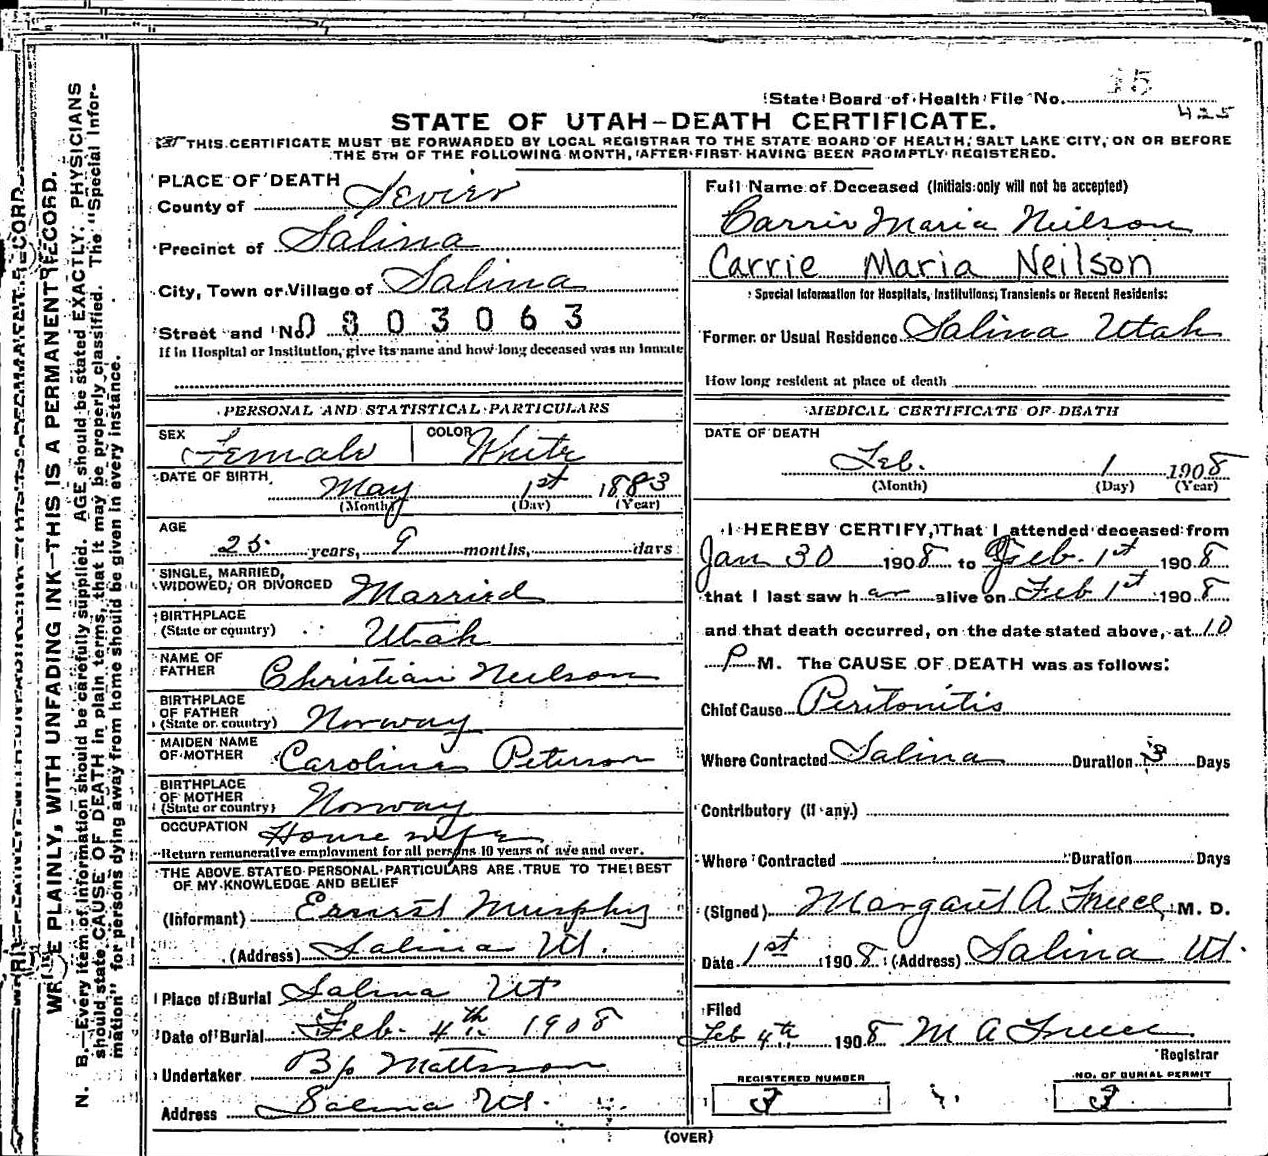 State Board of Health File No. 15
425
STATE OF UTAH-DEATH CERTIFICATE.
THIS CERTIFICATE MUST BE FORWARDED BY LOCAL REGISTRAR TO THE STATE BOARD OF HEALTH, SALT LAKE CITY, ON OR BEFORE
THE 5TH OF THE FOLLOWING MONTH, AFTER FIRST HAVING BEEN PROMPTLY REGISTERED.
PLACE OF DEATH
County of Sevier
Precinct of Salina
City, Town or Village of Salina
Street and No. 0303063
If in Hospital or Institution, give its name and how long deceased was an Inmate
PERSONAL AND STATISTICAL PARTICULARS
SEX Female COLOR White
DATE OF BIRTH May 1st 1883
(Month) (Day) (Year)
AGE
25 years, 9 months, days
SINGLE, MARRIED,
WIDOWED, OR DIVORCED Married
BIRTHPLACE
(State or country) Utah
NAME OF
FATHER Christian Neilson
BIRTHPLACE
OF FATHER
(State or country) Norway
MAIDEN NAME
OF MOTHER Carolina Peterson
BIRTHPLACE
OF MOTHER
(State or country) Norway
OCCUPATION House wife
Return remunerative employment for all persons 10 years of age and over.
THE ABOVE STATED PERSONAL PARTICULARS ARE TRUE TO THE BEST
OF MY KNOWLEDGE AND BELIEF
(Informant) Ernest Murphy
(Address) Salina Ut.
Place of Burial Salina Ut
Date of Burial Feb. 4th 1908
Undertaker Bp Mattsson
Address Salina Ut.
Full Name of Deceased (Initials only will not be accepted)
Carrie Maria Neilson
Carrie Maria Neilson
Special Information for Hospitals, Institutions, Transients or Recent Residents:
Former or Usual Residence Salina Utah
How long resident at place of death
MEDICAL CERTIFICATE OF DEATH
DATE OF DEATH
Feb. 1 1908
(Month) (Day) (Year)
I HEREBY CERTIFY, That I attended deceased from
Jan 30 1908 to Feb. 1st 1908
that I last saw her alive on Feb 1st 1908
and that death occurred, on the date stated above, at 10
P M. The CAUSE OF DEATH was as follows:
Chief Cause Peritonitis
Where Contracted Salina Duration 3 Days
Contributory (if any.)
Where Contracted Duration Days
(Signed) Margaret A Freece M. D.
Date 1st 1908 (Address) Salina Ut.
Filed
Feb 4th 1908 M A Freece
Registrar
REGISTERED NUMBER
3
NO. OF BURIAL PERMIT
3
(OVER)
WRITE PLAINLY, WITH UNFADING INK—THIS IS A PERMANENT RECORD.
N. B.—Every item of information should be carefully supplied. AGE should be stated EXACTLY. PHYSICIANS
should state CAUSE OF DEATH in plain terms, that it may be properly classified. The "Special Infor-
mation" for persons dying away from home should be given in every instance.